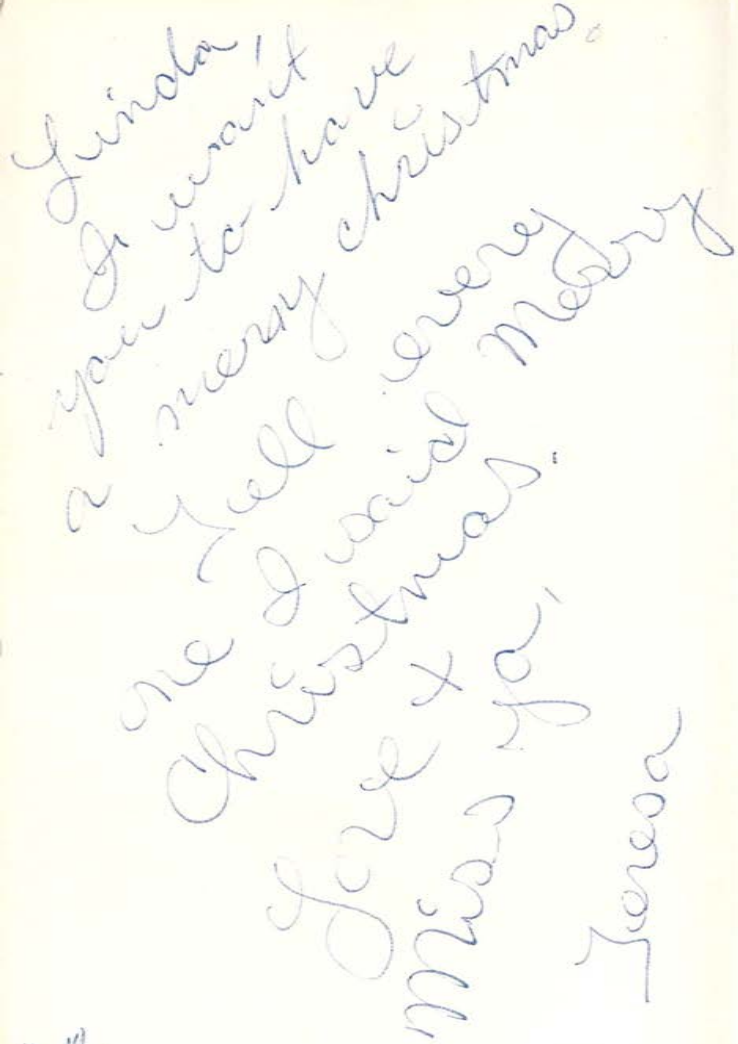 Linda,
I want
you to have
a merry christmas.
Tell every
one I said Merry
Christmas.
Love +
Miss ya,
Teresa